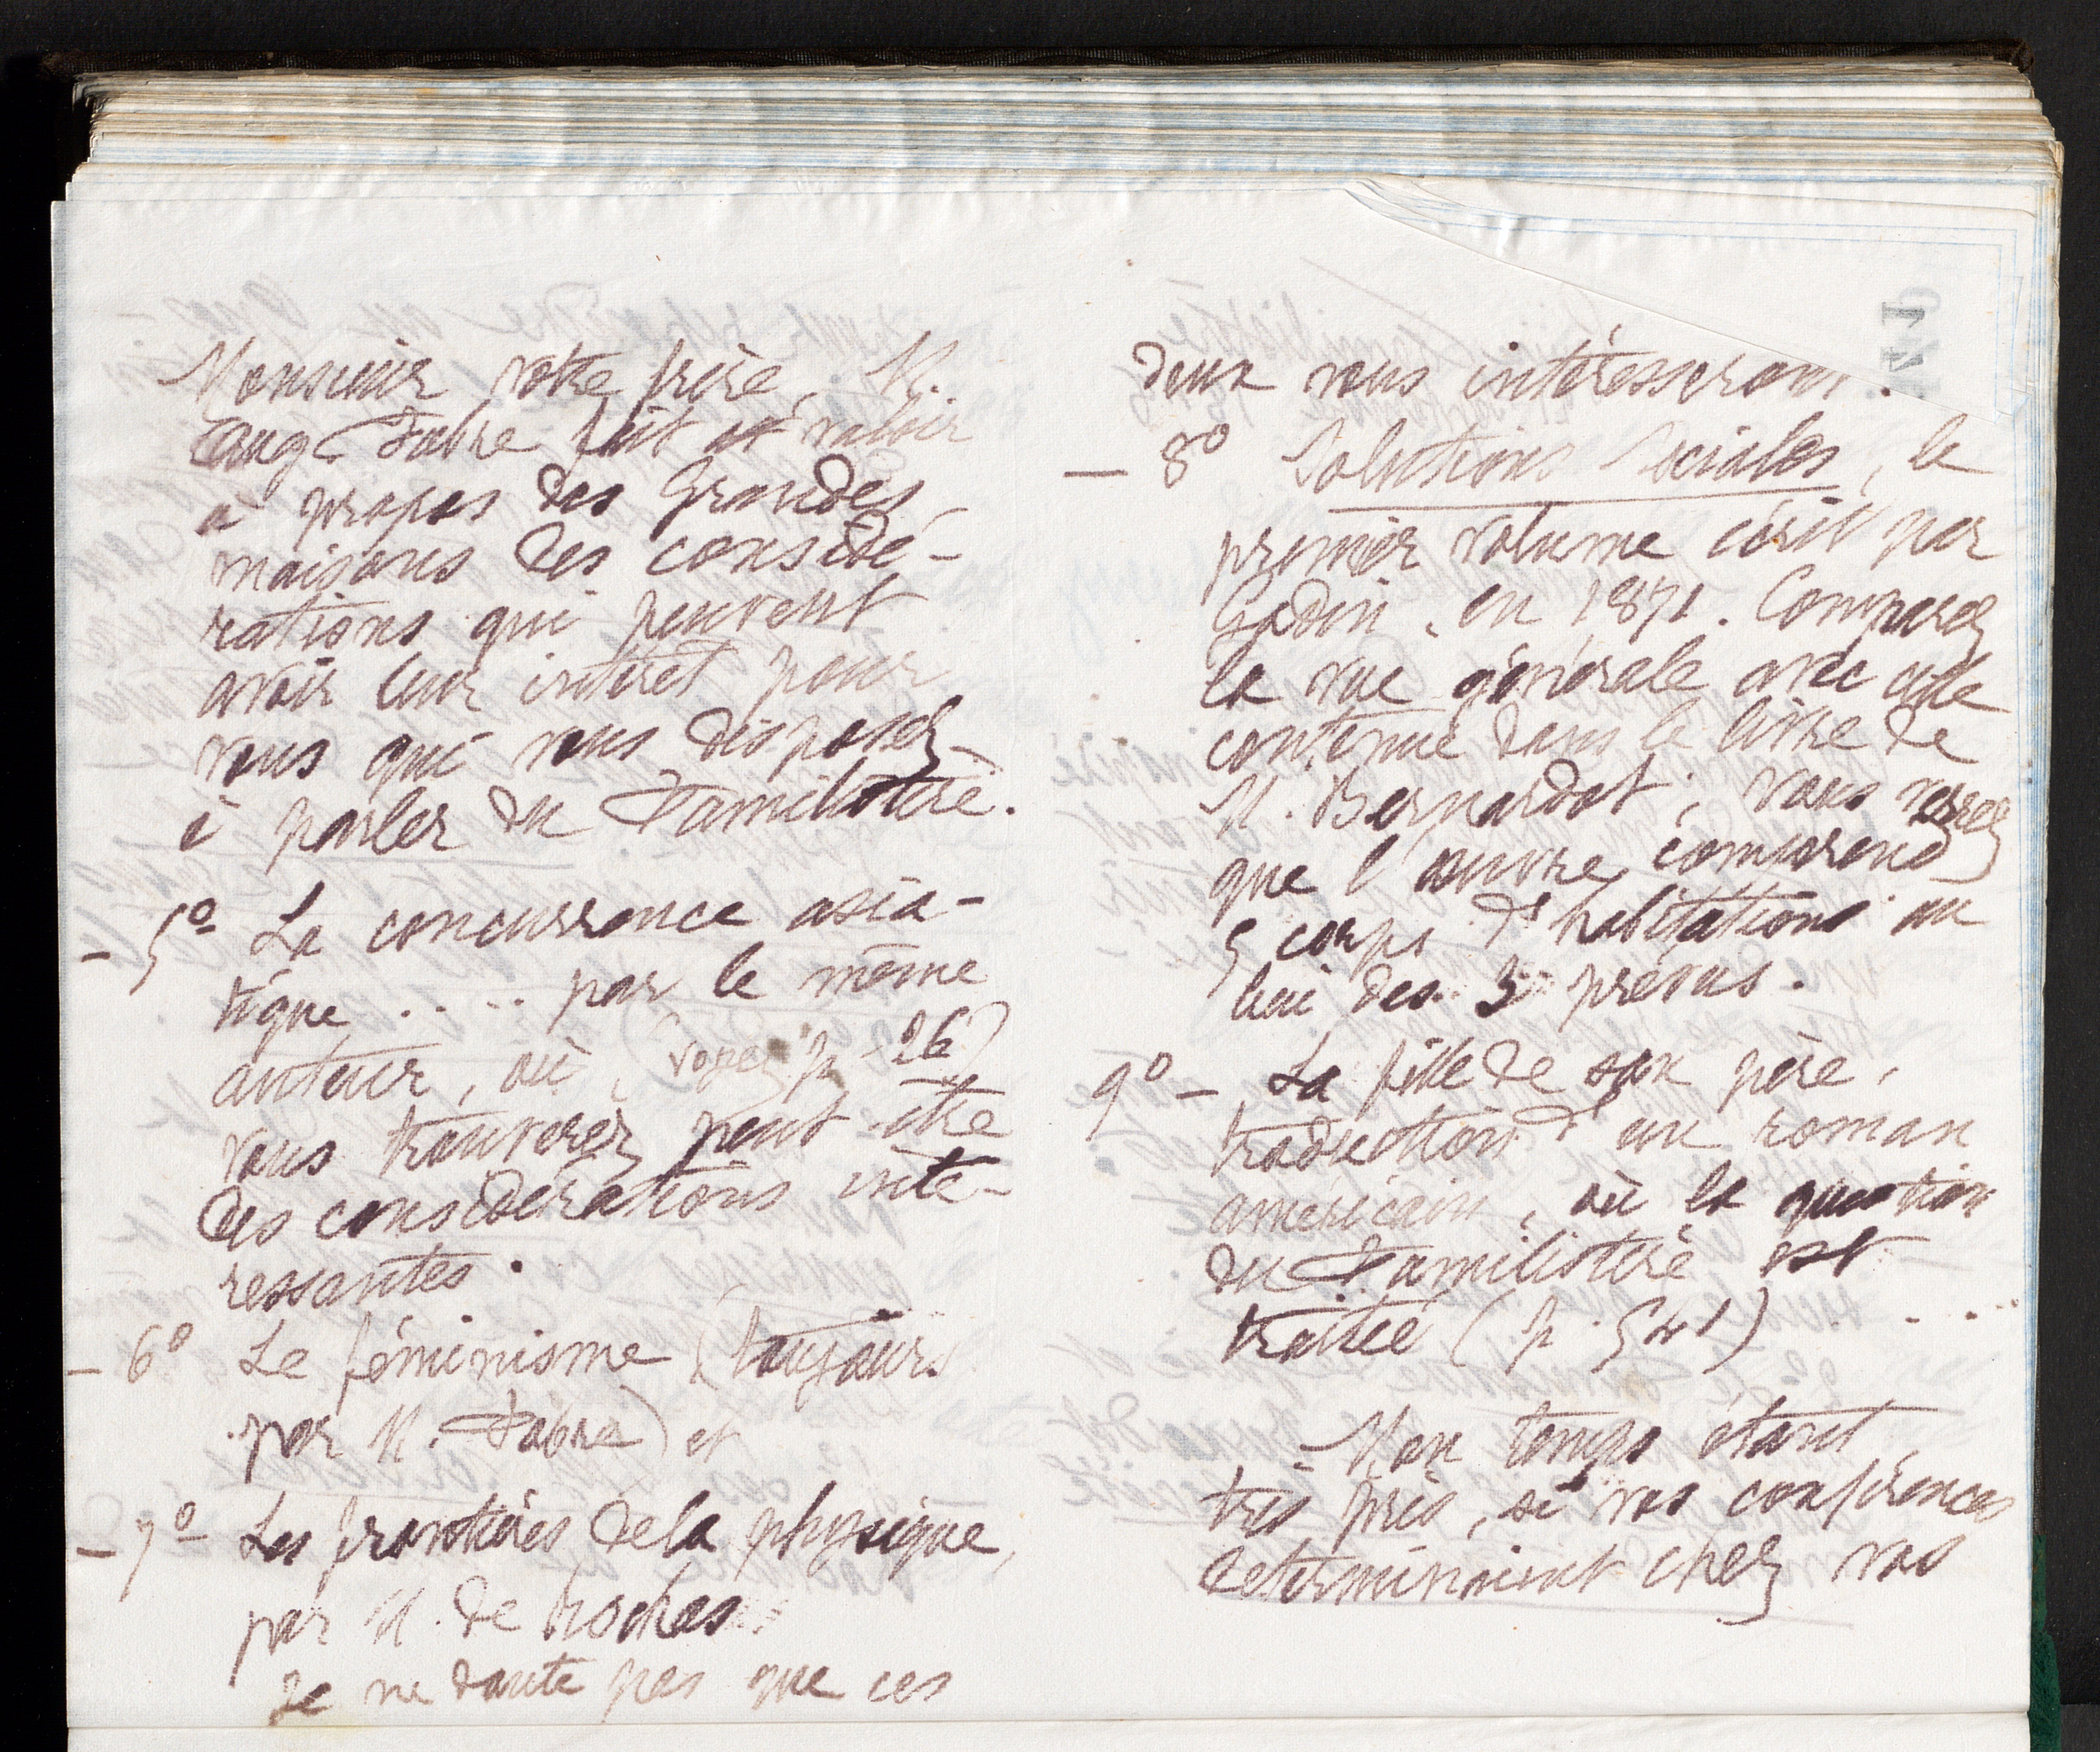 Monsieur votre frère, M.
Aug. Fabre fait valoir
à propos des Grandes
maisons des considé-
rations qui peuvent
avoir leur intérêt pour
vous qui vous disposez
à parler du Familistère.
- 5º La concurrence asia-
tique .... par le même
auteur, où, (voyez p 26)
vous trouverez peut-être
des considérations inté-
ressantes.
- 6º Le féminisme (toujours
par M. Fabre) et
- 7º Les frontières de la physique,
par M. de Rochas.
Je ne doute pas que ces
deux vous intéresseront.
- 8º Solutions Sociales, le
premier volume écrit par
Godin, en 1871. Comparez
la vue générale avec celle
contenue dans le livre de
M. Bernardot; vous verrez
que l'œuvre comprend
5 corps d'habitations au
lieu des 3 prévus.
9º - La fille de son père,
traduction d'un roman
américain, où la question
du Familistère est
traitée (p. 541) ...
Mon temps étant
très pris, si vos conférences
déterminaient chez vos